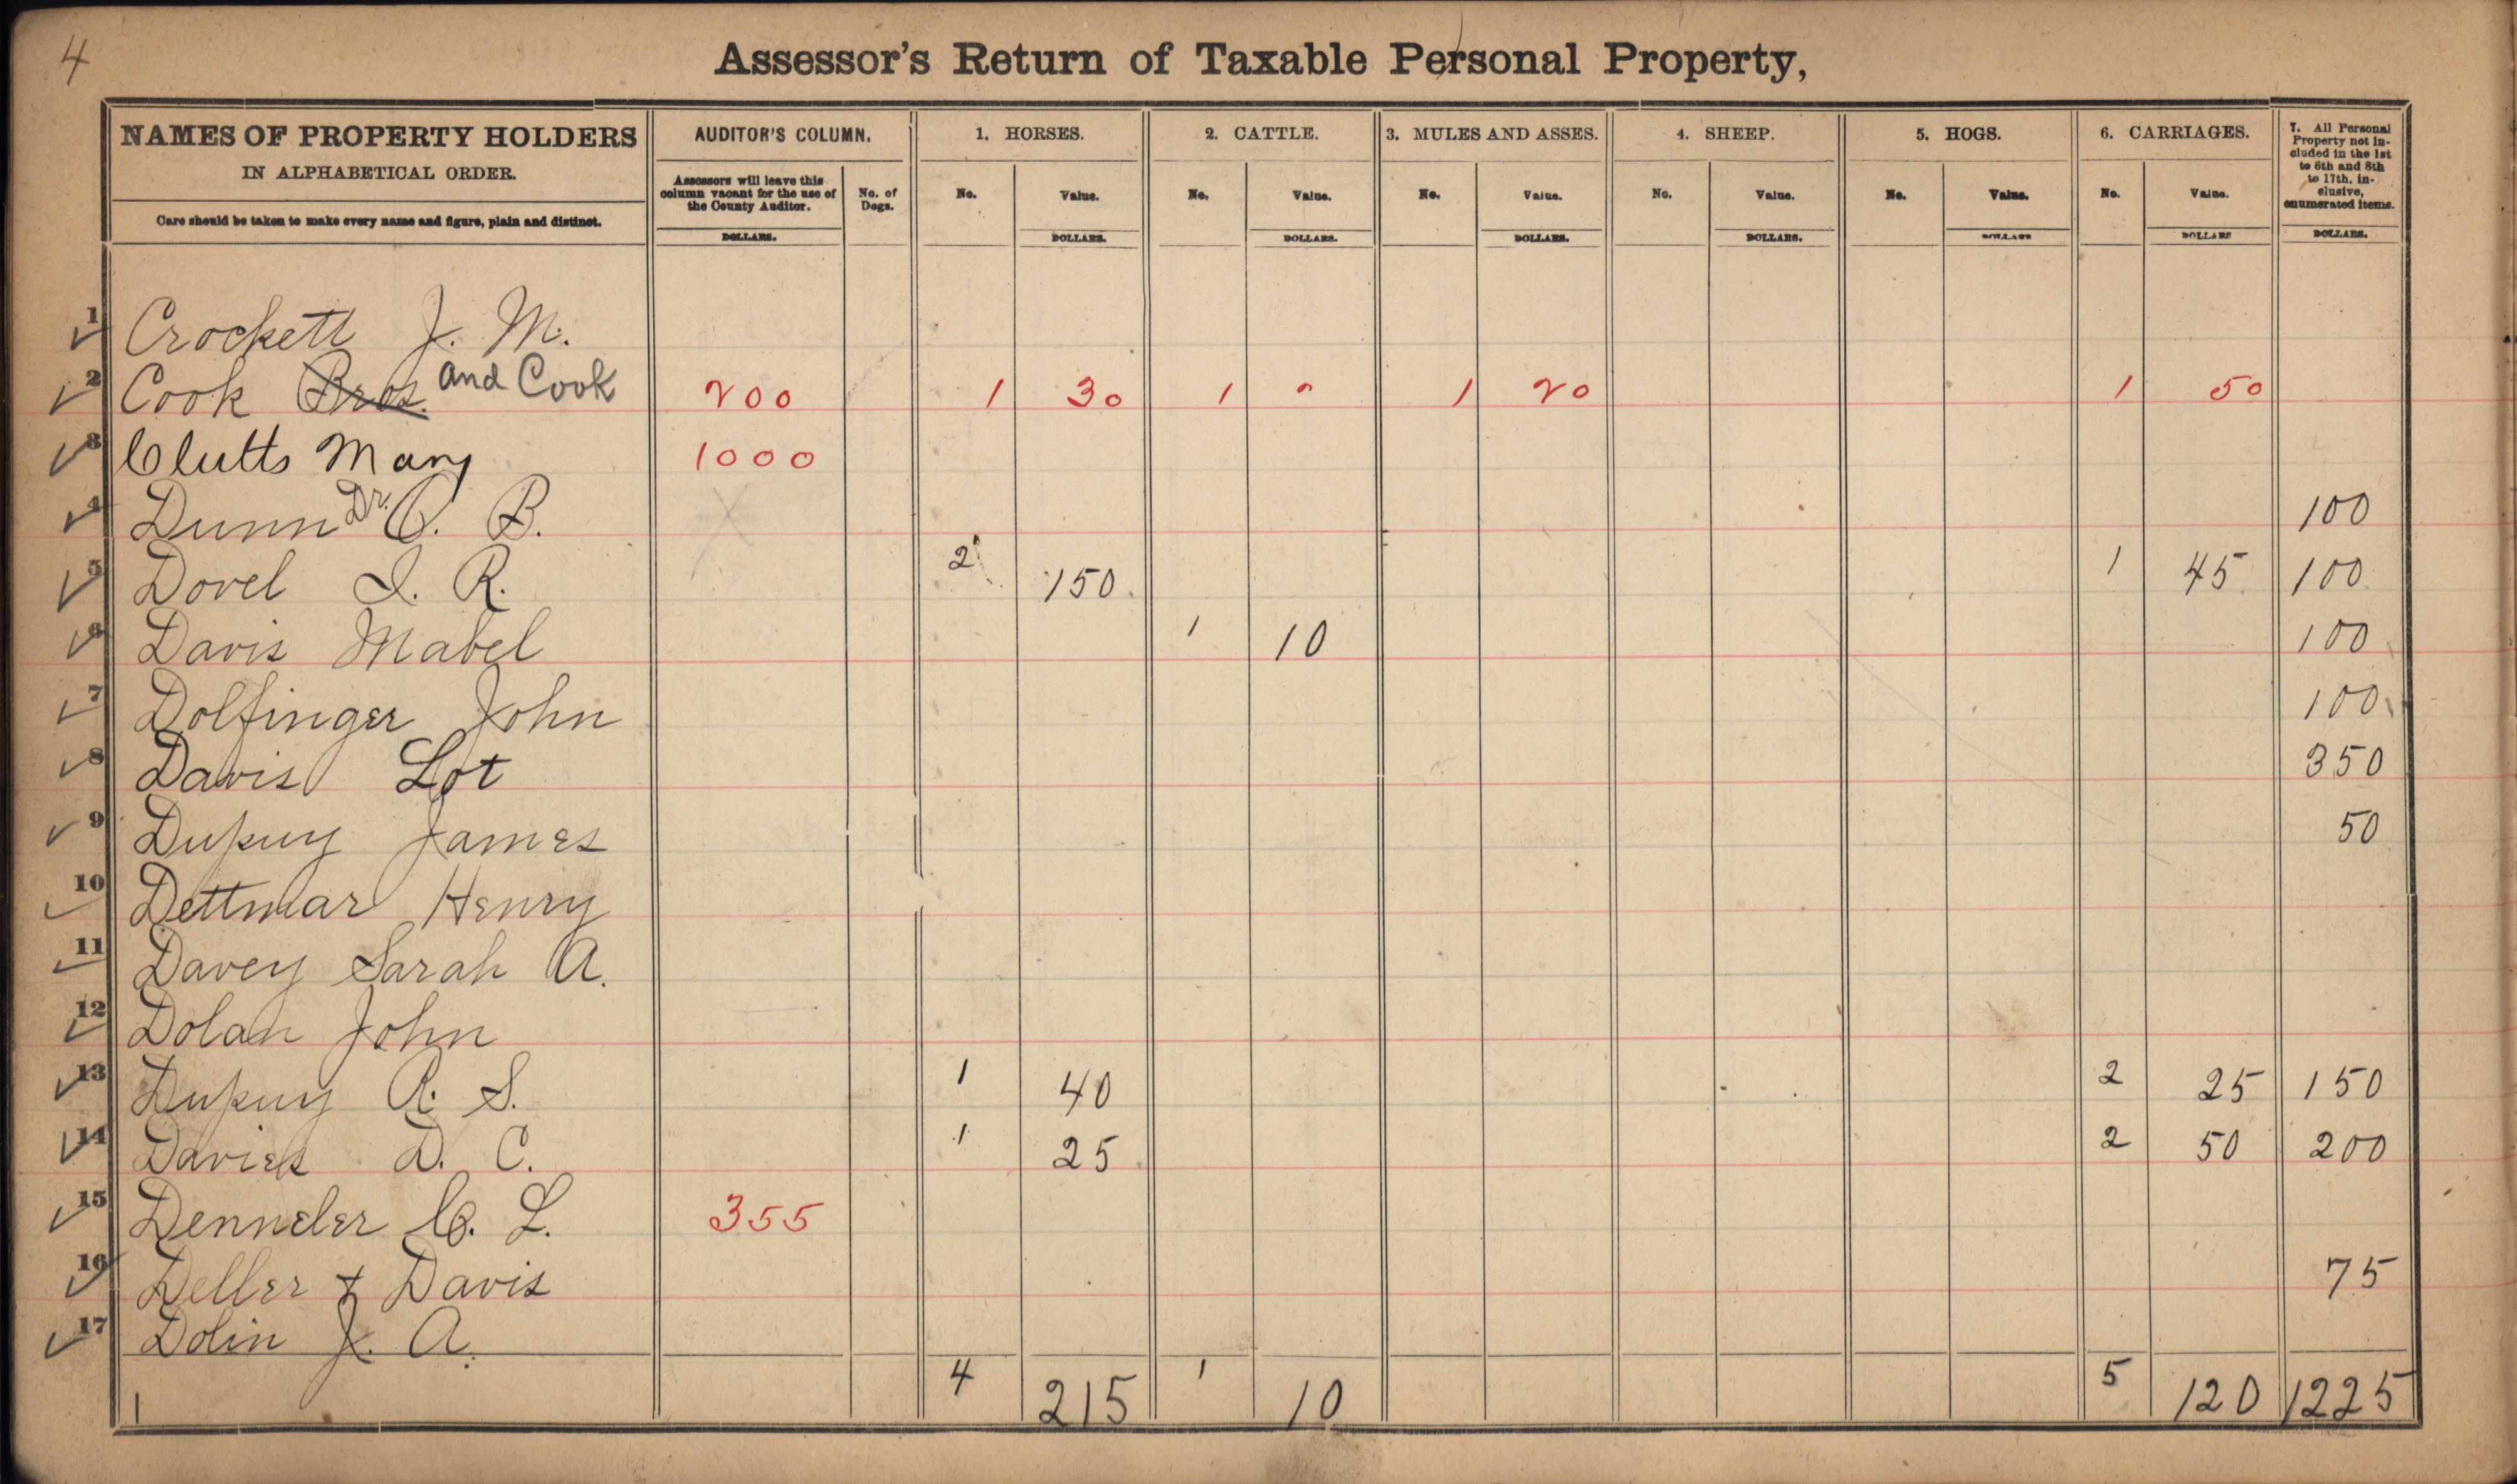 4
Assessor's Return of Taxable Personal Property,
NAMES OF PROPERTY HOLDERS
IN ALPHABETICAL ORDER.
Care should be taken to make every name and figure, plain and distinct.
AUDITOR'S COLUMN.
Assessors will leave this column vacant for the use of the County Auditor.
DOLLARS.
No. of Dogs.
1. HORSES.
No. Value.
DOLLARS.
2. CATTLE.
No. Value.
DOLLARS.
3. MULES AND ASSES.
No. Value.
DOLLARS.
4. SHEEP.
No. Value.
DOLLARS.
5. HOGS.
No. Value.
DOLLARS
6. CARRIAGES.
No. Value.
DOLLARS
7. All Personal Property not included in the 1st to 6th and 8th to 17th, inclusive, enumerated items.
DOLLARS.
1 Crockett J. M.
2 Cook Bros. and Cook 200 1 30 1 " 1 20 1 50
3 Clutts Mary 1000
4 Dunn Dr. O. B. 100
5 Dovel I. R. 2 150 1 45 100
6 Davis Mabel 1 10 100
7 Dolfinger John 100
8 Davis Lot 350
9 Dupuy James 50
10 Dettmar Henry
11 Davey Sarah A.
12 Dolan John
13 Dupuy R. S. 1 40 2 25 150
14 Davies D. C. 1 25 2 50 200
15 Denneler C. L. 355
16 Deller & Davis 75
17 Dolin J. A.
4 215 1 10 5 120 1225